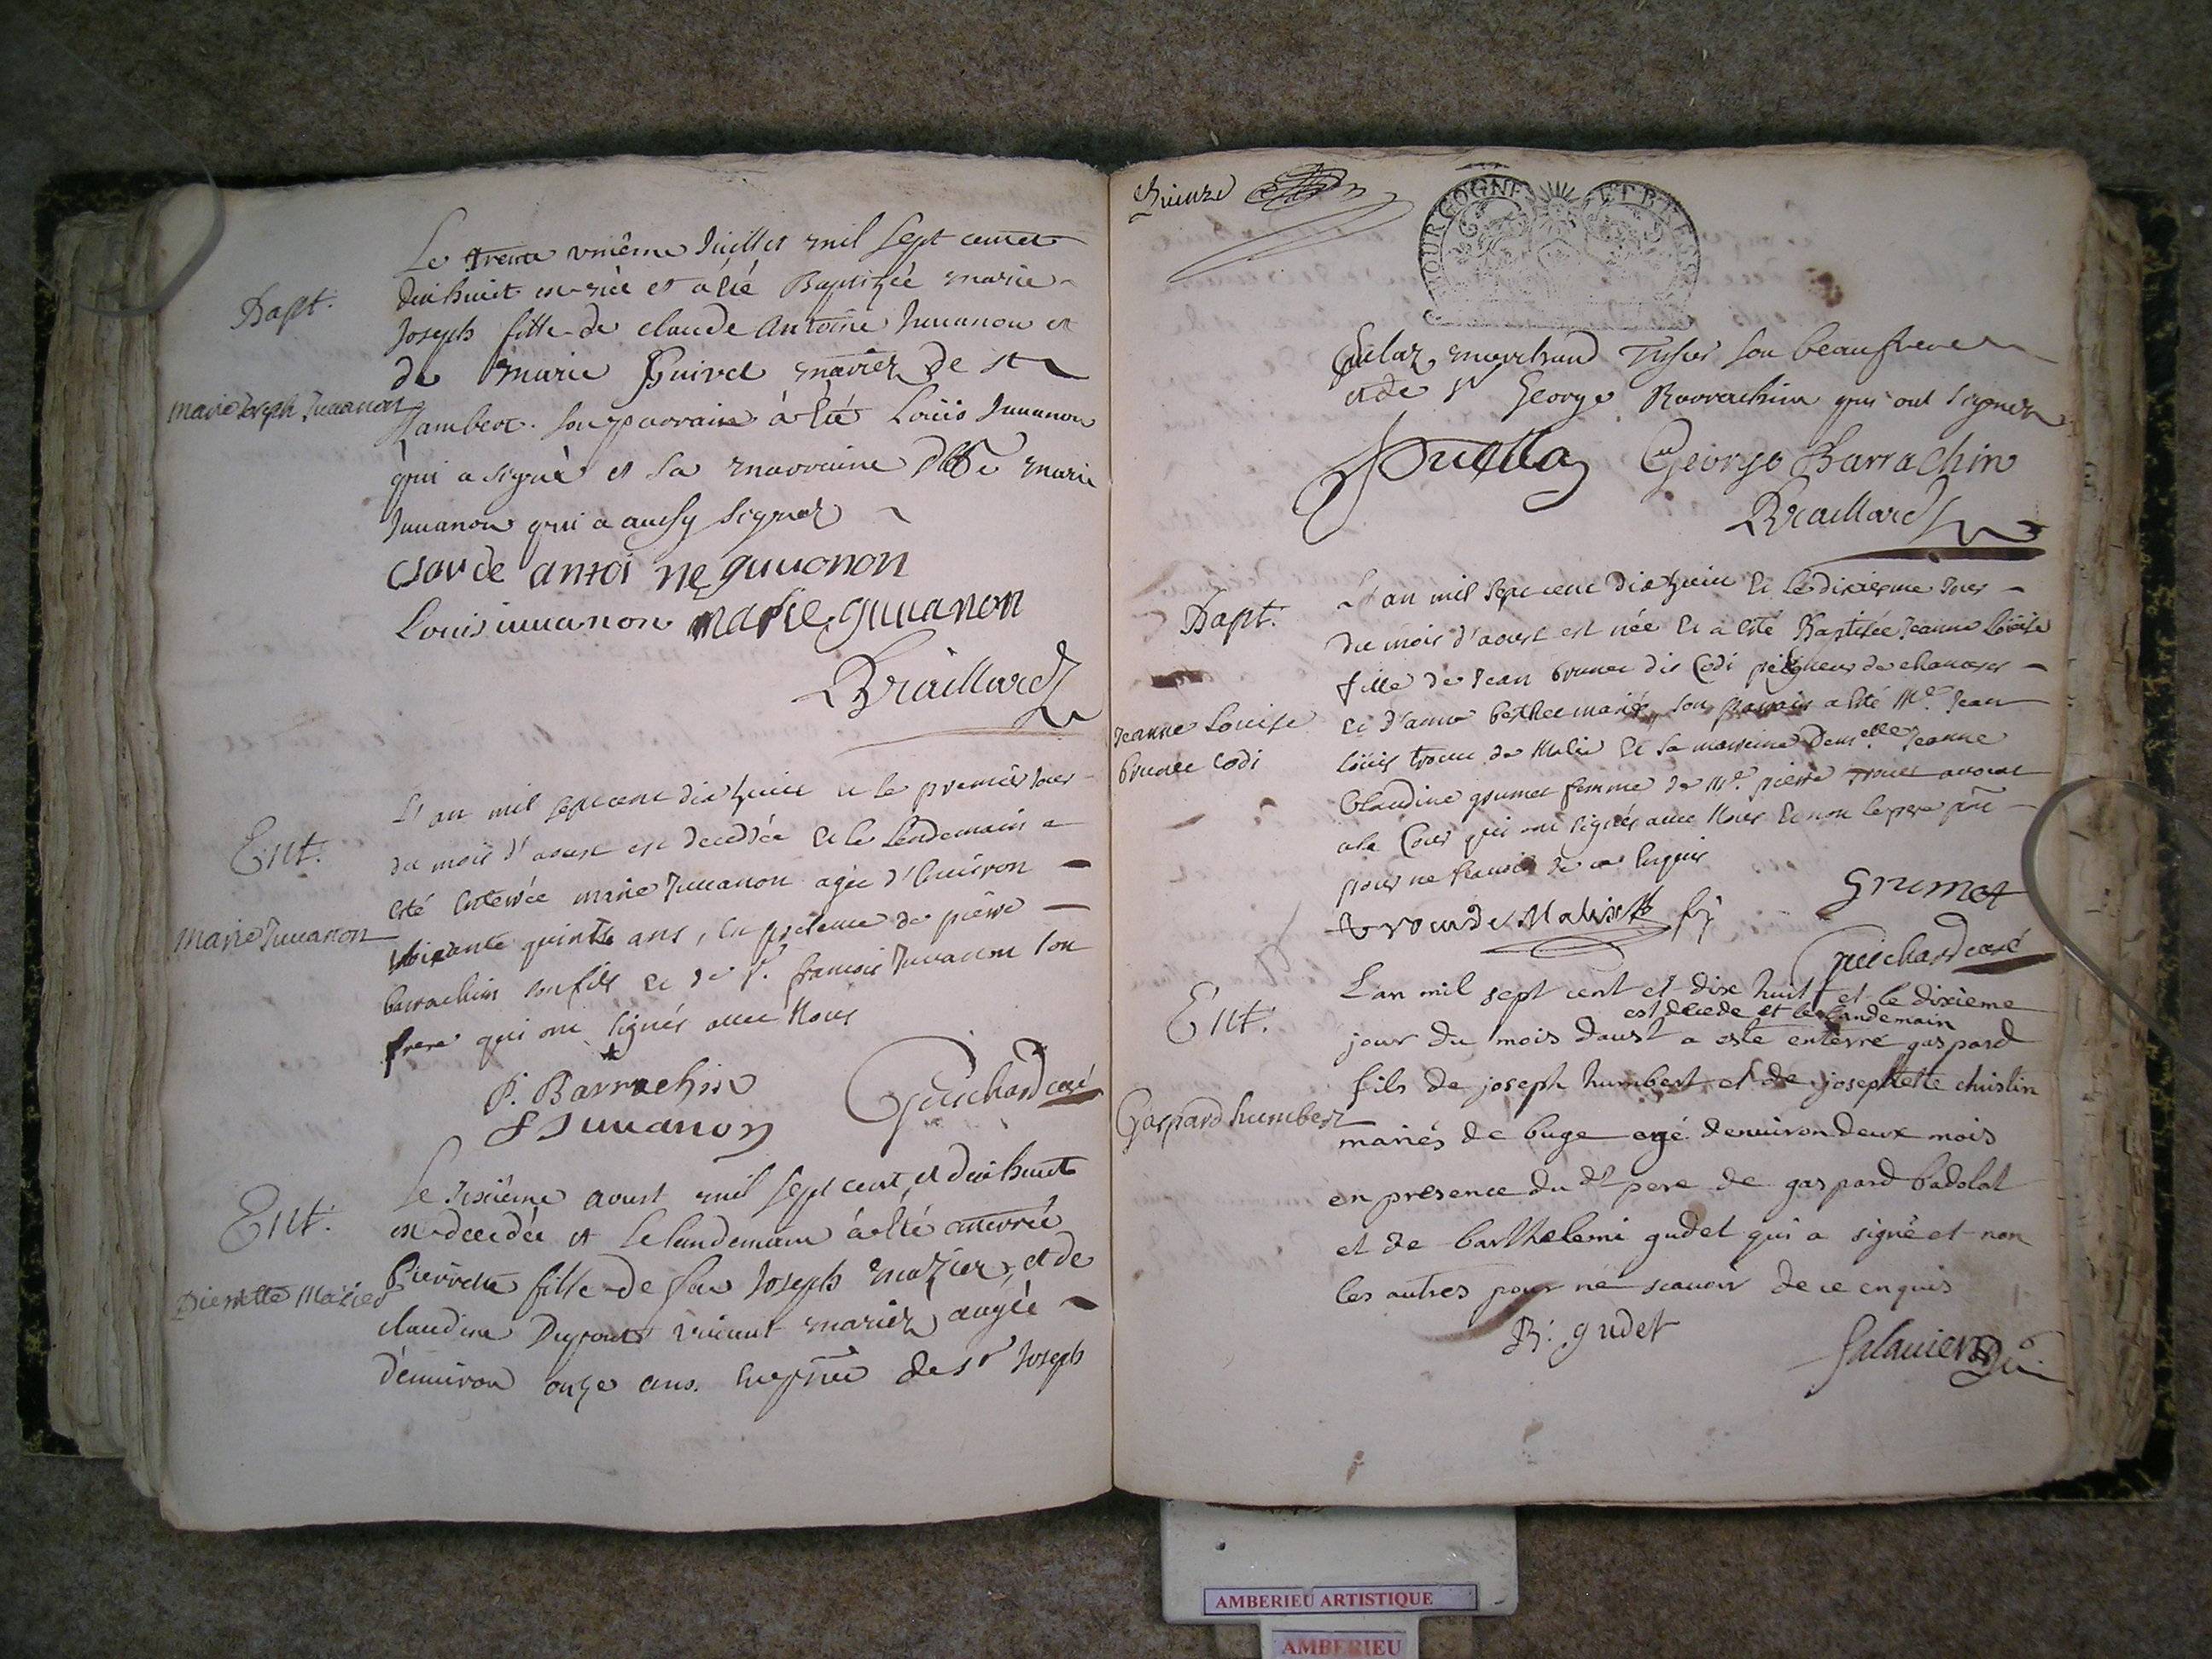 Bapt.
Marie Joseph Juuanon
Le trente vniême Juillet mil sept cent et
dix huit est née et à été Baptizée marie
Joseph fille de claude Antoine Juuanon et
de marie Guivet mariez de st
Lambert. Son parrain à été Loüis Juuanon
qui a signé et sa marraine dlle marie
Juuanon qui a aussy signez
claude antoi ne guuanon
Louis iuuanon marie guuanon
Braillard
Ent.
Marie Juuanon
L'an mil sept cent dix huit et le premier jour
du mois d'aoust est decedée et le Lendemain a
esté enterrée marie Juuanon agée d'enuiron
soixante quinze ans, en presence de pierre
barrachin son fils et de sr. francois Juuanon son
frere qui ont signés auec Nous
P. Barrachin
f Juuanon
Guichard curé
Ent.
Pierrette Mazier
Le sixiême aoust mil sept cent et dix huit
est decedée et le landemain à été enterrée
Pierrette fille de feu Joseph mazier, et de
claudine Dupont viuant mariez, augée
d'enuiron onze ans. En pnce de sr Joseph
BOURGOGNE ET BRESSE
marchand son beaufrere
et de sr George Barrachin qui ont signez
George Barrachin
Braillard
Bapt.
Jeanne Louise
brunet Codi
L'an mil sept cent dix huit et le dixiesme jour
du mois d'aoust est née et a esté Baptisée Jeanne Loüise
fille de Jean brunet dit Codi peigneur de chanvre
et d'anne berthet mariés, son parrain a esté Mr. Jean
Loüis trocu de Malix et sa marreine Demelle Jeanne
Claudine grumet femme de Mr. pierre avocat
a la Cour qui ont signés auec Nous et non le pere pnt
pour ne scauoir de ce enquis
grumet
Guichard curé
Ent.
Gaspard humbert
L'an mil sept cent et dix huit et le dixieme
est decede et le landemain
jour du mois daust a esté enterré gaspard
fils de joseph humbert et de josephette christin
mariés de buge agé denuiron deux mois
en presence du dt pere de gaspard badolat
et de barthelemi gudet qui a signé et non
les autres pour ne scauoir de ce enquis
B: gudet
AMBERIEU ARTISTIQUE
AMBERIEU